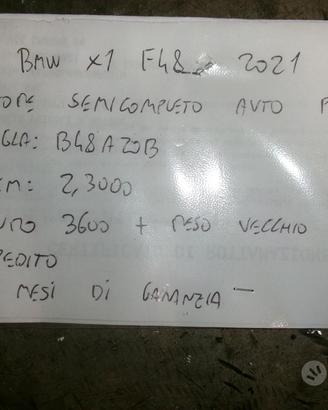 BMW X1 F48 2021
TORE SEMICOMPLETO AUTO P
GLA: B48A20B
M: 2,3000
URO 3600 + RESO VECCHIO
PEDITO
MESI DI GARANZIA -